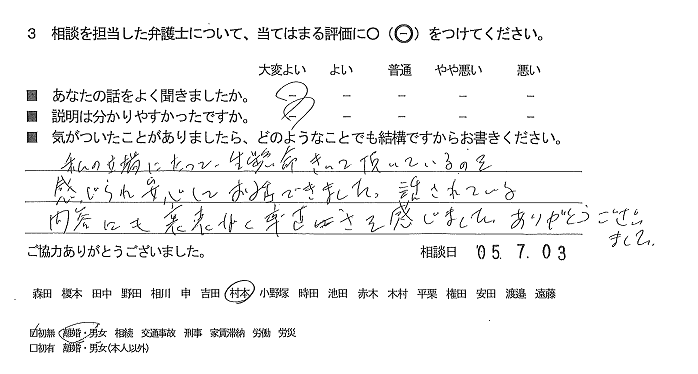 3 相談を担当した弁護士について、当てはまる評価に○（⊖）をつけてください。
大変よい よい 普通 やや悪い 悪い
■ あなたの話をよく聞きましたか。 － － － － －
■ 説明は分かりやすかったですか。 － － － － －
■ 気がついたことがありましたら、どのようなことでも結構ですからお書きください。
私の立場にたって、生懸命きいて頂いているのを
感じられ安心してお話できました。話されている
内容にも裏表なく率直さを感じました。ありがとうござい
ました。
ご協力ありがとうございました。 相談日 '05. 7. 03
森田 榎本 田中 野田 相川 申 吉田 村本 小野塚 時田 池田 赤木 木村 平栗 権田 安田 渡邉 遠藤
☑初無 離婚・男女 相続 交通事故 刑事 家賃滞納 労働 労災
□初有 離婚・男女(本人以外)